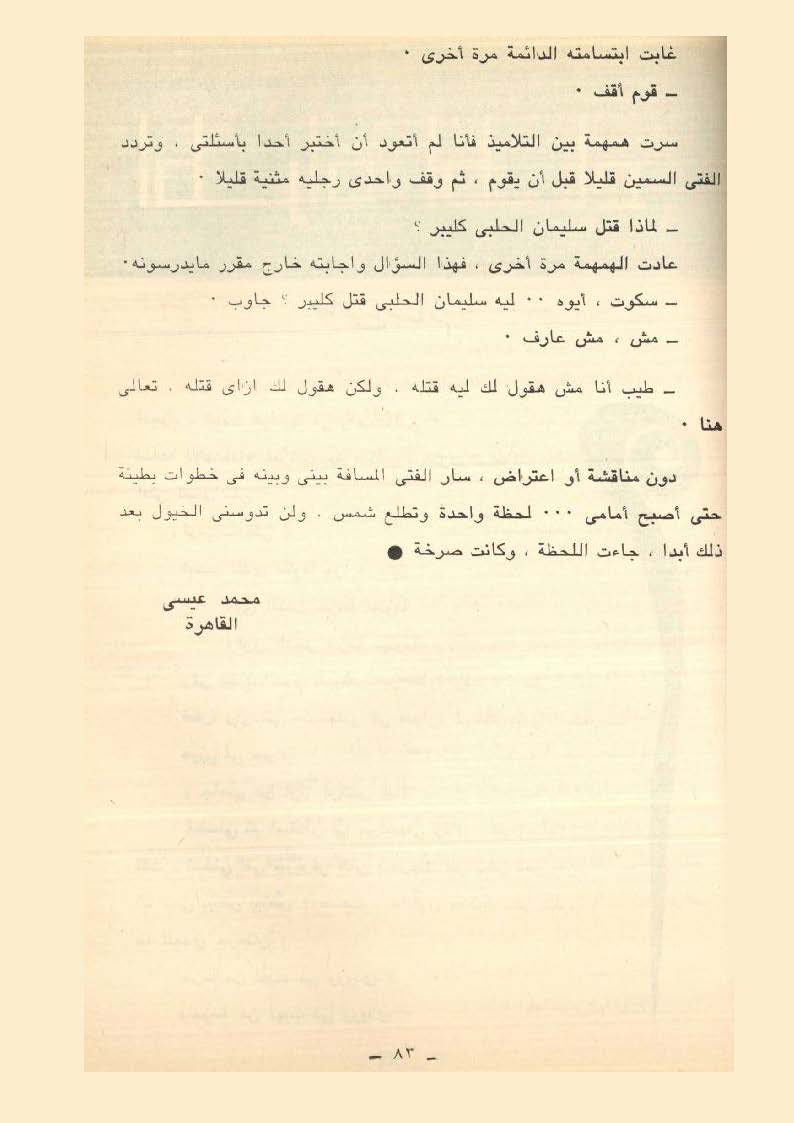 غابت ابتسامته الدائمة مرة أخرى ٠
ـ قوم أقف ٠
سرت همهمة بين التلاميذ فأنا لم أتعود أن أختبر أحدا بأسئلتى ، وتردد
الفتى السمين قليلا قبل أن يقوم ، ثم وقف واحدى رجليه مثنية قليلا ٠
ـ لماذا قتل سليمان الحلبى كليبر ؟
عادت الهمهمة مرة أخرى ، فهذا السؤال واجابته خارج مقرر مايدرسونه٠
ـ سكوت ، أيوه ٠٠ ليه سليمان الحلبى قتل كليبر ؟ جاوب ٠
ـ مش ، مش عارف ٠
ـ طيب أنا مش هقول لك ليه قتله ، ولكن هقول لك ازاى قتله ، تعالى
هنا ٠
دون مناقشة أو اعتراض ، سار الفتى المسافة بينى وبينه فى خطوات بطيئة
حتى أصبح أمامى ٠٠٠ لحظة واحدة وتطلع شمس ، ولن تدوسنى الخيول بعد
ذلك أبدا ، جاءت اللحظة ، وكانت صرخة ●
محمد عيسى
القاهرة
ـ ٨٣ ـ